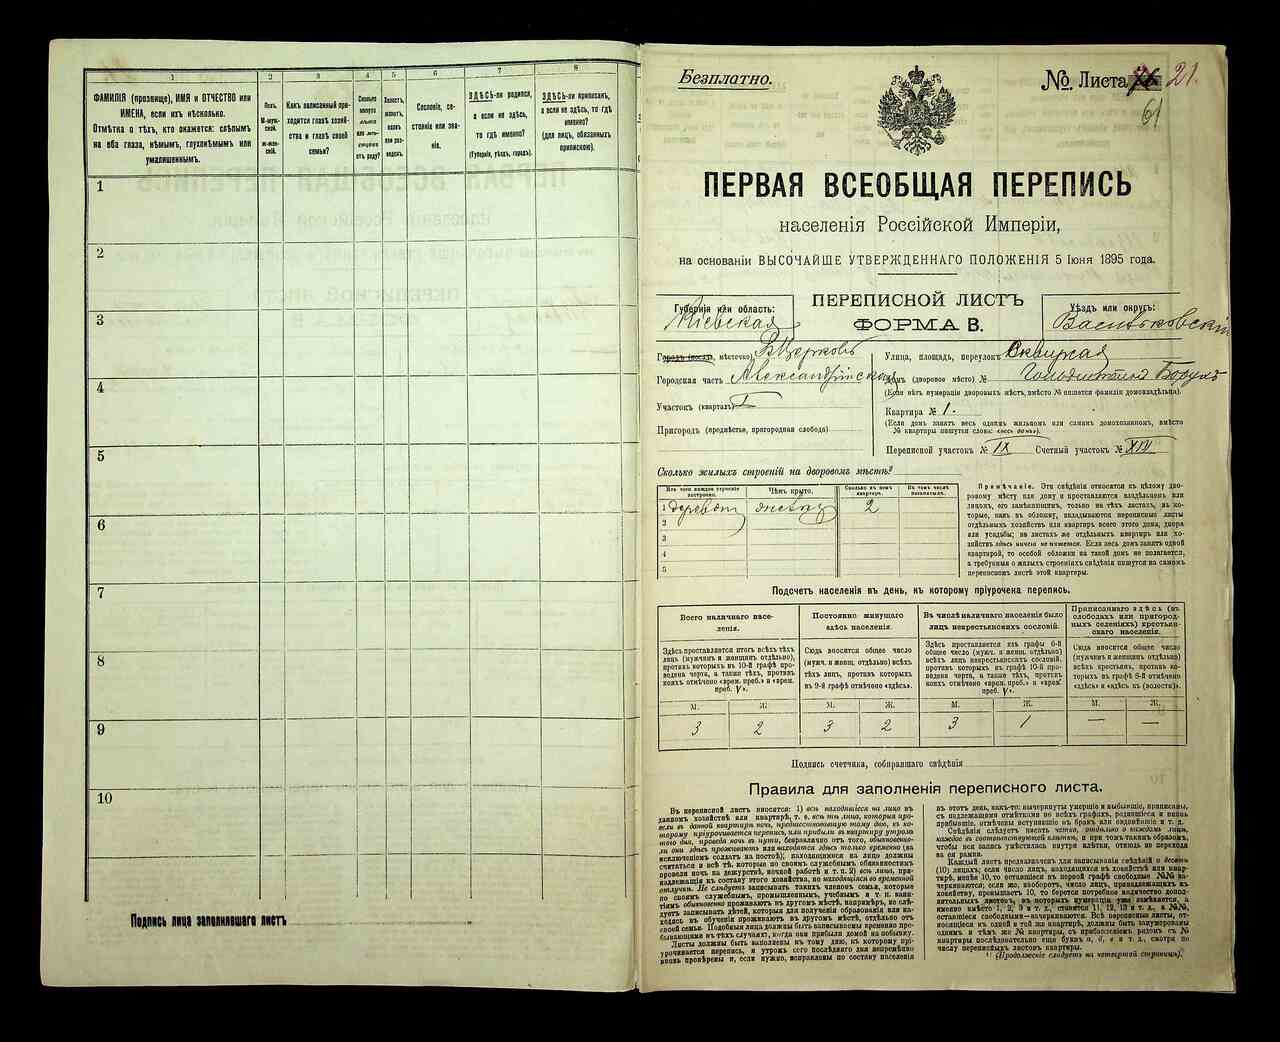 1
2
3
4
5
6
7
8
ФАМИЛІЯ (прозвище), ИМЯ и ОТЧЕСТВО или
ИМЕНА, если ихъ нѣсколько.
Отмѣтка о тѣхъ, кто окажется: слѣпымъ
на оба глаза, нѣмымъ, глухонѣмымъ или
умалишеннымъ.
Полъ.
М-муж-
ской.
ж-жен-
скій.
Какъ записанный при-
ходится главѣ хозяй-
ства и главѣ своей
семьи?
Сколько
минуло
лѣтъ
или мѣся-
цевъ
отъ роду?
Холостъ,
женатъ,
вдовъ
или раз-
веденъ.
Сословіе, со-
стояніе или зва-
ніе.
ЗДѢСЬ-ли родился,
а если не здѣсь,
то гдѣ именно?
(Губернія, уѣздъ, городъ).
ЗДѢСЬ-ли приписанъ,
а если не здѣсь, то гдѣ
именно?
(для лицъ, обязанныхъ
припискою).
1
2
3
4
5
6
7
8
9
10
Подпись лица заполнявшаго листъ
Безплатно.
№ Листа 21.
61
ПЕРВАЯ ВСЕОБЩАЯ ПЕРЕПИСЬ
населенія Россійской Имперіи,
на основаніи ВЫСОЧАЙШЕ УТВЕРЖДЕННАГО ПОЛОЖЕНІЯ 5 Іюня 1895 года.
ПЕРЕПИСНОЙ ЛИСТЪ
ФОРМА В.
Губернія или область:
Кіевская
Уѣздъ или округъ:
Васильковскій
Городъ (посадъ, мѣстечко) Б Церковь
Городская часть Александрійская
Участок (кварталъ) I
Пригородъ (предмѣстье, пригородная слобода)
Улица, площадь, переулокъ Сквирская
Домъ (дворовое мѣсто) № Гольдштейна Борухъ
(Если нѣтъ нумераціи дворовыхъ мѣстъ, вмѣсто № пишется фамилія домовладѣльца).
Квартира № 1.
(Если домъ занятъ весь однимъ жильцомъ или самимъ домохозяиномъ, вмѣсто
№ квартиры пишутся слова: «весь домъ»).
Переписной участокъ № IX Счетный участокъ № XIII
Сколько жилыхъ строеній на дворовомъ мѣстѣ?
Изъ чего каждое строеніе
построено.
Чѣмъ крыто.
Сколько въ немъ
квартиръ.
Въ томъ числѣ
незанятыхъ.
1 дерев. 2
2
3
4
5
Примѣчаніе. Эти свѣдѣнія относятся къ цѣлому дво-
ровому мѣсту или дому и проставляются владѣльцемъ или
лицомъ, его замѣняющимъ, только на тѣхъ листахъ, въ ко-
торые, какъ въ обложку, вкладываются переписные листы
отдѣльныхъ хозяйствъ или квартиръ всего этого дома, двора
или усадьбы; на листахъ же отдѣльныхъ квартиръ или хо-
зяйствъ здѣсь ничего не пишется. Если весь домъ занятъ одной
квартирой, то особой обложки на такой домъ не полагается,
а требуемыя о жилыхъ строеніяхъ свѣдѣнія пишутся на самомъ
переписномъ листѣ этой квартиры.
Подсчетъ населенія въ день, къ которому пріурочена перепись.
Всего наличнаго насе-
ленія.
Постоянно живущаго
здѣсь населенія.
Въ числѣ наличнаго населенія было
лицъ некрестьянскихъ сословій.
Приписаннаго здѣсь (въ
слободахъ или пригород-
ныхъ селеніяхъ) крестьян-
скаго населенія.
Здѣсь проставляется итогъ всѣхъ тѣхъ
лицъ (мужчинъ и женщинъ отдѣльно),
противъ которыхъ въ 10-й графѣ про-
ведена черта, а также тѣхъ, противъ
коихъ отмѣчено «врем. преб.» и «врем.
преб. V».
Сюда вносится общее число
(мужч. и женщ. отдѣльно) всѣхъ
тѣхъ лицъ, противъ которыхъ
въ 9-й графѣ отмѣчено «здѣсь».
Здѣсь проставляется изъ графы 6-й
общее число (мужч. и женщ. отдѣльно)
всѣхъ лицъ некрестьянскихъ сословій,
противъ которыхъ въ графѣ 10-й про-
ведена черта, а также тѣхъ, противъ
коихъ отмѣчено «врем. преб.» и «врем.
преб. V».
Сюда вносится общее число
(мужчинъ и женщинъ отдѣльно)
всѣхъ крестьянъ, противъ ко-
торыхъ въ графѣ 8-й отмѣчено
«здѣсь» и «здѣсь къ (волости)».
М. Ж. М. Ж. М. Ж. М. Ж.
3 2 3 2 3 1 — —
Подпись счетчика, собиравшаго свѣдѣнія
Правила для заполненія переписного листа.
Въ переписной листъ вносятся: 1) всѣ находящіеся на лицо въ
данномъ хозяйствѣ или квартирѣ, т. е. всѣ тѣ лица, которыя про-
вели въ данной квартирѣ ночь, предшествовавшую тому дню, къ ко-
торому пріурочивается перепись, или прибыли въ квартиру утромъ
того дня, проведя ночь въ пути, безразлично отъ того, обыкновен-
но ли они здѣсь проживаютъ или находятся здѣсь только временно (за
исключеніемъ солдатъ на постоѣ); находящимися на лицо должны
считаться и всѣ тѣ, которые по своимъ служебнымъ обязанностямъ
провели ночь на дежурствѣ, ночной работѣ и т. п. 2) всѣ лица, при-
надлежащія къ составу этого хозяйства, но находящіяся во временной
отлучкѣ. Не слѣдуетъ записывать такихъ членовъ семьи, которые
по своимъ служебнымъ, промышленнымъ, учебнымъ и т. п. заня-
тіямъ обыкновенно проживаютъ въ другомъ мѣстѣ, напримѣръ, не слѣ-
дуетъ записывать дѣтей, которыя для полученія образованія или на-
ходясь въ обученіи проживаютъ въ другомъ мѣстѣ, отдѣльно отъ
своей семьи. Подобныя лица должны быть записываемы временно пре-
бывающими въ тѣхъ случаяхъ, когда они прибыли домой на побывку.
Листы должны быть заполнены къ тому дню, къ которому прі-
урочивается перепись, и утромъ сего послѣдняго дня непремѣнно
вновь провѣрены и, если нужно, исправлены по составу населенія
въ этотъ день, какъ-то: вычеркнуты умершіе и выбывшіе, приписаны,
съ надлежащими отмѣтками во всѣхъ графахъ, родившіеся и вновь
прибывшіе, отмѣчены вступившіе въ бракъ или овдовѣвшіе и т. д.
Свѣдѣнія слѣдуетъ писать четко, отдѣльно о каждомъ лицѣ,
каждое въ соотвѣтствующей клѣткѣ, и при томъ такимъ образомъ,
чтобы вся запись умѣстилась внутри клѣтки, отнюдь не переходя
за ея рамки.
Каждый листъ предназначенъ для записыванія свѣдѣній о десяти
(10) лицахъ; если число лицъ, находящихся въ хозяйствѣ или квар-
тирѣ, менѣе 10, то оставшіеся въ первой графѣ свободные №№ за-
черкиваются; если же, наоборотъ, число лицъ, принадлежащихъ къ
хозяйству, превышаетъ 10, то берется потребное количество допол-
нительныхъ листовъ, въ которыхъ нумерація уже измѣняется, а
именно вмѣсто 1, 2, 3 и т. д., ставятся 11, 12, 13 и т. д., а №№,
оставшіеся свободными—зачеркиваются. Всѣ переписные листы, от-
носящіеся къ одной и той же квартирѣ, должны быть занумерованы
однимъ и тѣмъ же № квартиры, съ прибавленіемъ рядомъ съ №
квартиры послѣдовательно еще буквъ а, б, в и т. д., смотря по
числу переписныхъ листовъ квартиры.
(Продолженіе слѣдуетъ на четвертой страницѣ).